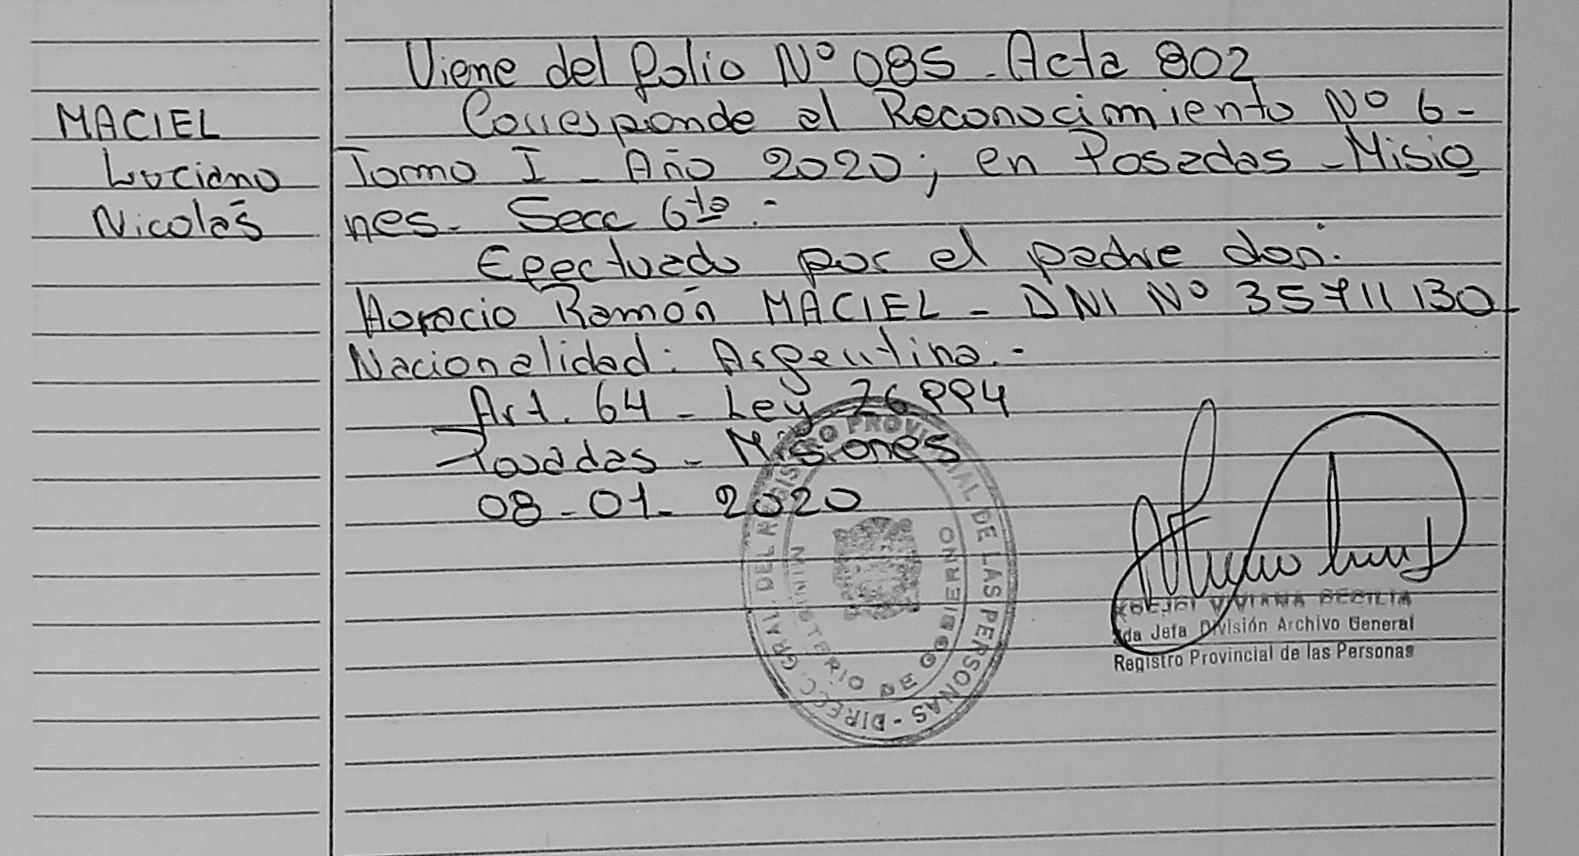 Viene del folio Nº 085 - Acta 802
MACIEL
Luciano
Nicolás
Corresponde al Reconocimiento Nº 6 -
Tomo I - Año 2020; en Posadas - Misio
nes - Secc 6ta .-
Efectuado por el padre don:
Horacio Ramón MACIEL - DNI Nº 35711130
Nacionalidad: Argentina.-
Art. 64 - Ley 26994
Posadas - Misiones
08-01-2020
DIRECC. GRAL. DEL REGISTRO PROVINCIAL DE LAS PERSONAS -
MINISTERIO DE GOBIERNO
VIVIANA CECILIA
Jefa División Archivo General
Registro Provincial de las Personas